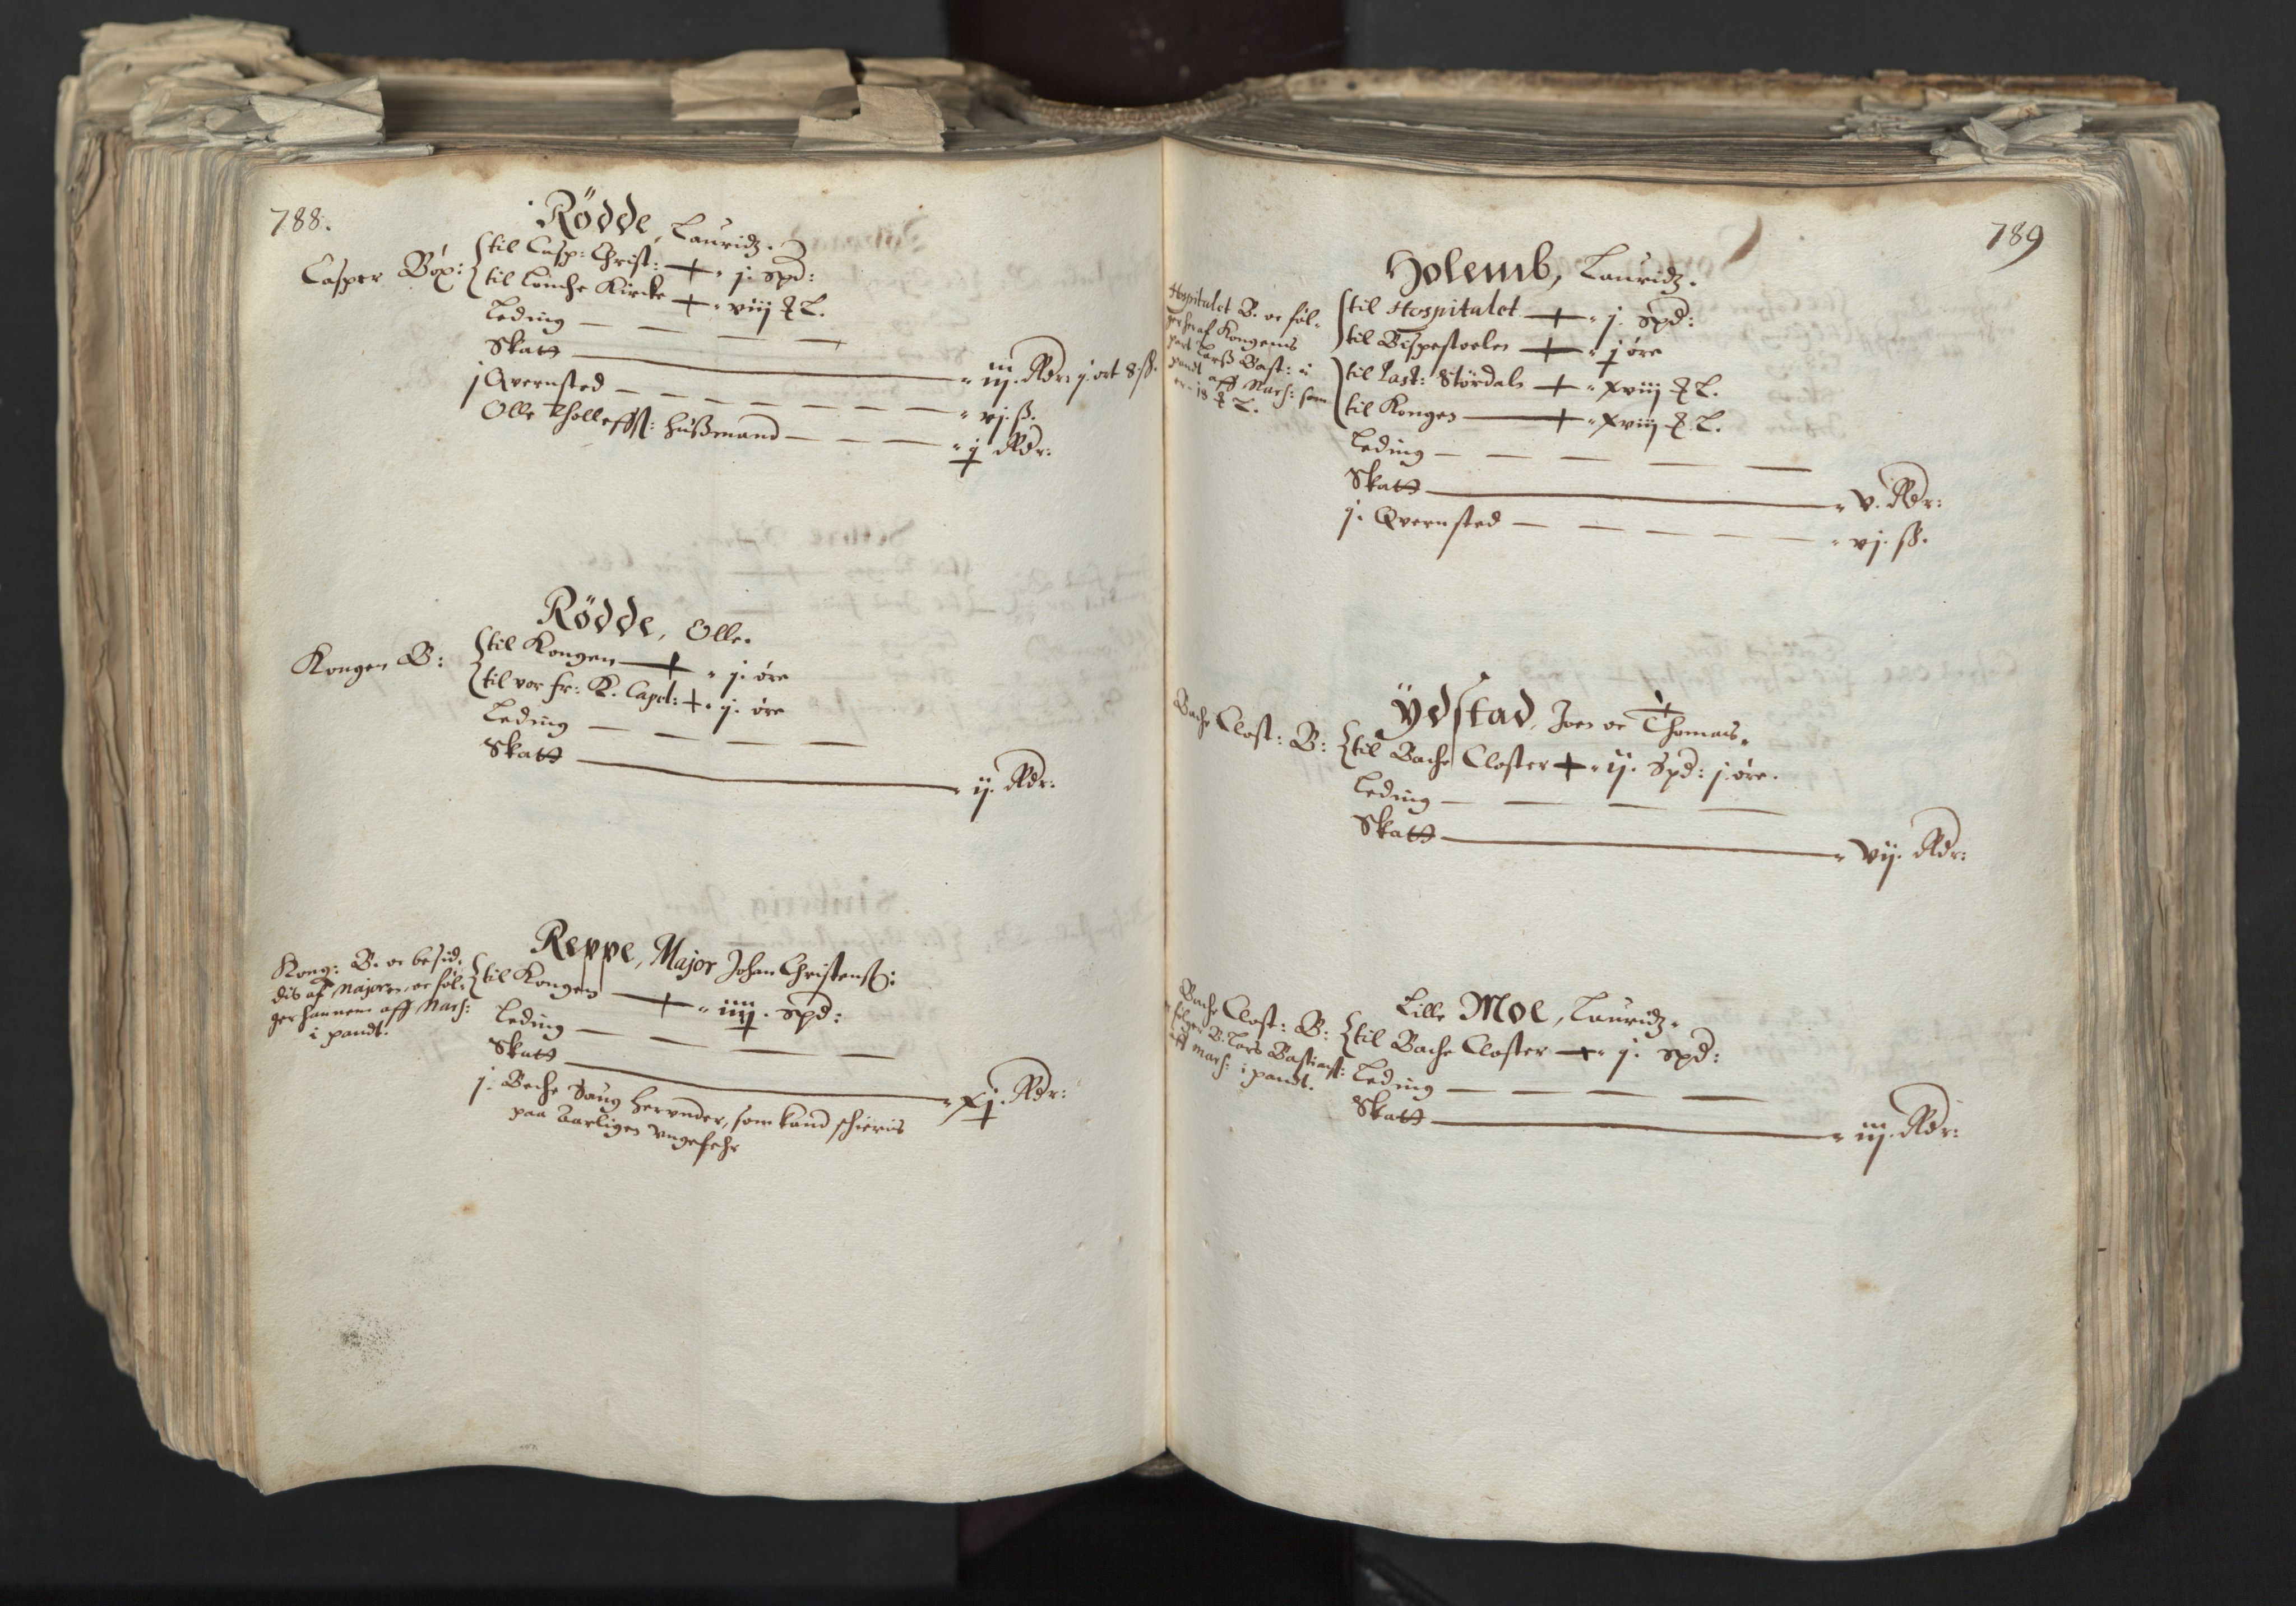 788.
Rödde, Lauridz.
Casper Böx: til Casp: Christ: + " j. Spd:
til Lönche Kircke + " viij ℔ L.
Leding — — — —
Skatt — " iij. Rdr: j. ort 8. ß.
j Qvernsted — " vj. ß.
Olle Tholleffß: Hußmand — " j Rdr:
Rödde, Olle.
Kongen B: til Kongen + " j. öre
til vor fr: K. Capel: + " j. öre
Leding — — — —
Skatt — " ij. Rdr:
Reppe, Major Johan Christenß:
Kong: B. oc besid,
dis af Majoren, oc föl-
ger hannem aff Mats:
i pandt.
til Kongen + " iiij. Spd:
Leding — — — —
Skatt — " xj. Rdr:
j. Beche Saug herunder, som kand schieris
paa Aarligen ungefehr
789
Holemb, Lauridz.
Hospitalet B. oc föl-
ger heraf Kongens
part Larß Bast: i
pandt aff Mats: som
er 18 ℔ L.
til Hospitalet + " j. Spd:
til Bispestoelen + " j öre
til Past: Stördalen + " xviij ℔ L.
til Kongen + " xviij ℔ L.
Leding — — — — —
Skatt — " v. Rdr:
j. Qvernsted — " vj. ß.
Ydstad, Joen oc Thomas.
Bache Clost: B: til Bache Closter + " ij. Spd: j öre.
Leding — — — —
Skatt — " vij. Rdr:
Lille Moe, Lauridz.
Bache Clost: B:
fölger B. Lars Bastianß:
aff Mats: i pandt.
til Bache Closter + " j. Spd:
Leding — — — — —
Skatt — " iij. Rdr: